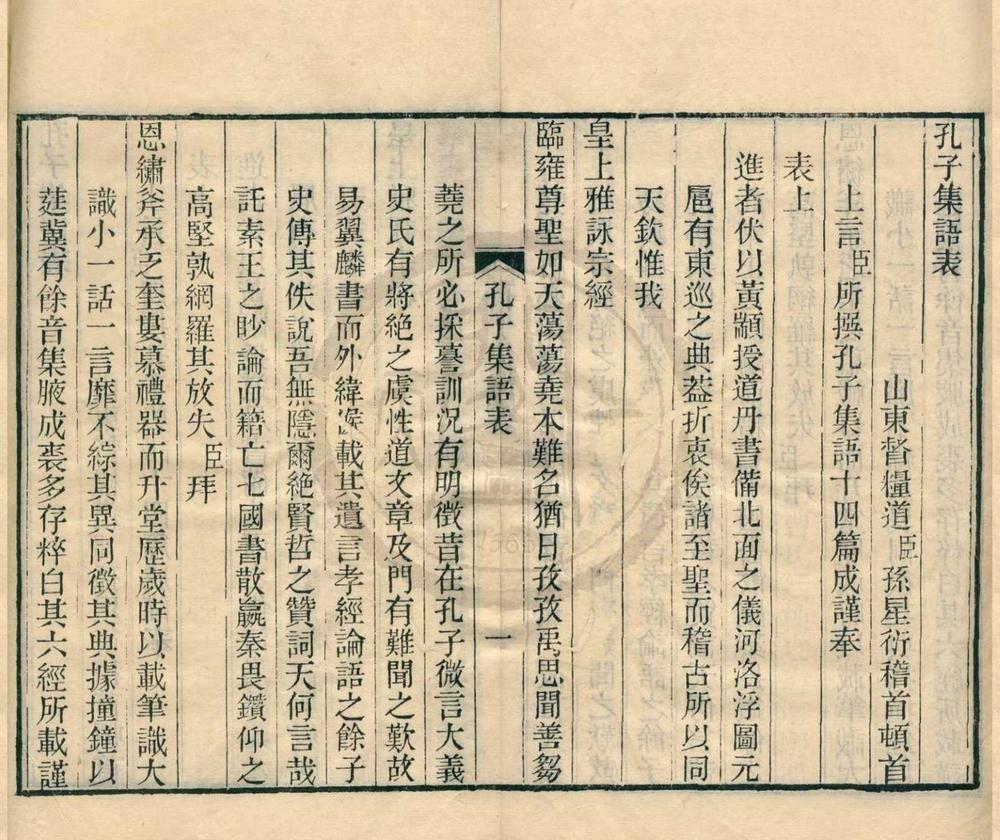 孔子集語表
山東督糧道臣孫星衍稽首頓首
上言臣所撰孔子集語十四篇成謹奉
表上
進者伏以黃顓授道丹書備北面之儀河洛浮圖元
扈有東巡之典葢折衷俟諸至聖而稽古所以同
天欽惟我
皇上雅詠宗經
臨雍尊聖如天蕩蕩堯本難名猶日孜孜禹思聞善芻
孔子集語表 一
蕘之所必採謩訓況有明徵昔在孔子微言大義
史氏有將絕之虞性道文章及門有難聞之歎故
易翼麟書而外緯候載其遺言孝經論語之餘子
史傳其佚說吾無隱爾絕賢哲之贊詞天何言哉
託素王之眇論而籍亡七國書散嬴秦畏鑽仰之
高堅孰網羅其放失臣拜
恩繡斧承乏奎婁慕禮器而升堂歷歲時以載筆識大
識小一話一言靡不綜其異同徵其典據撞鐘以
莛冀有餘音集腋成裘多存粹白其六經所載謹